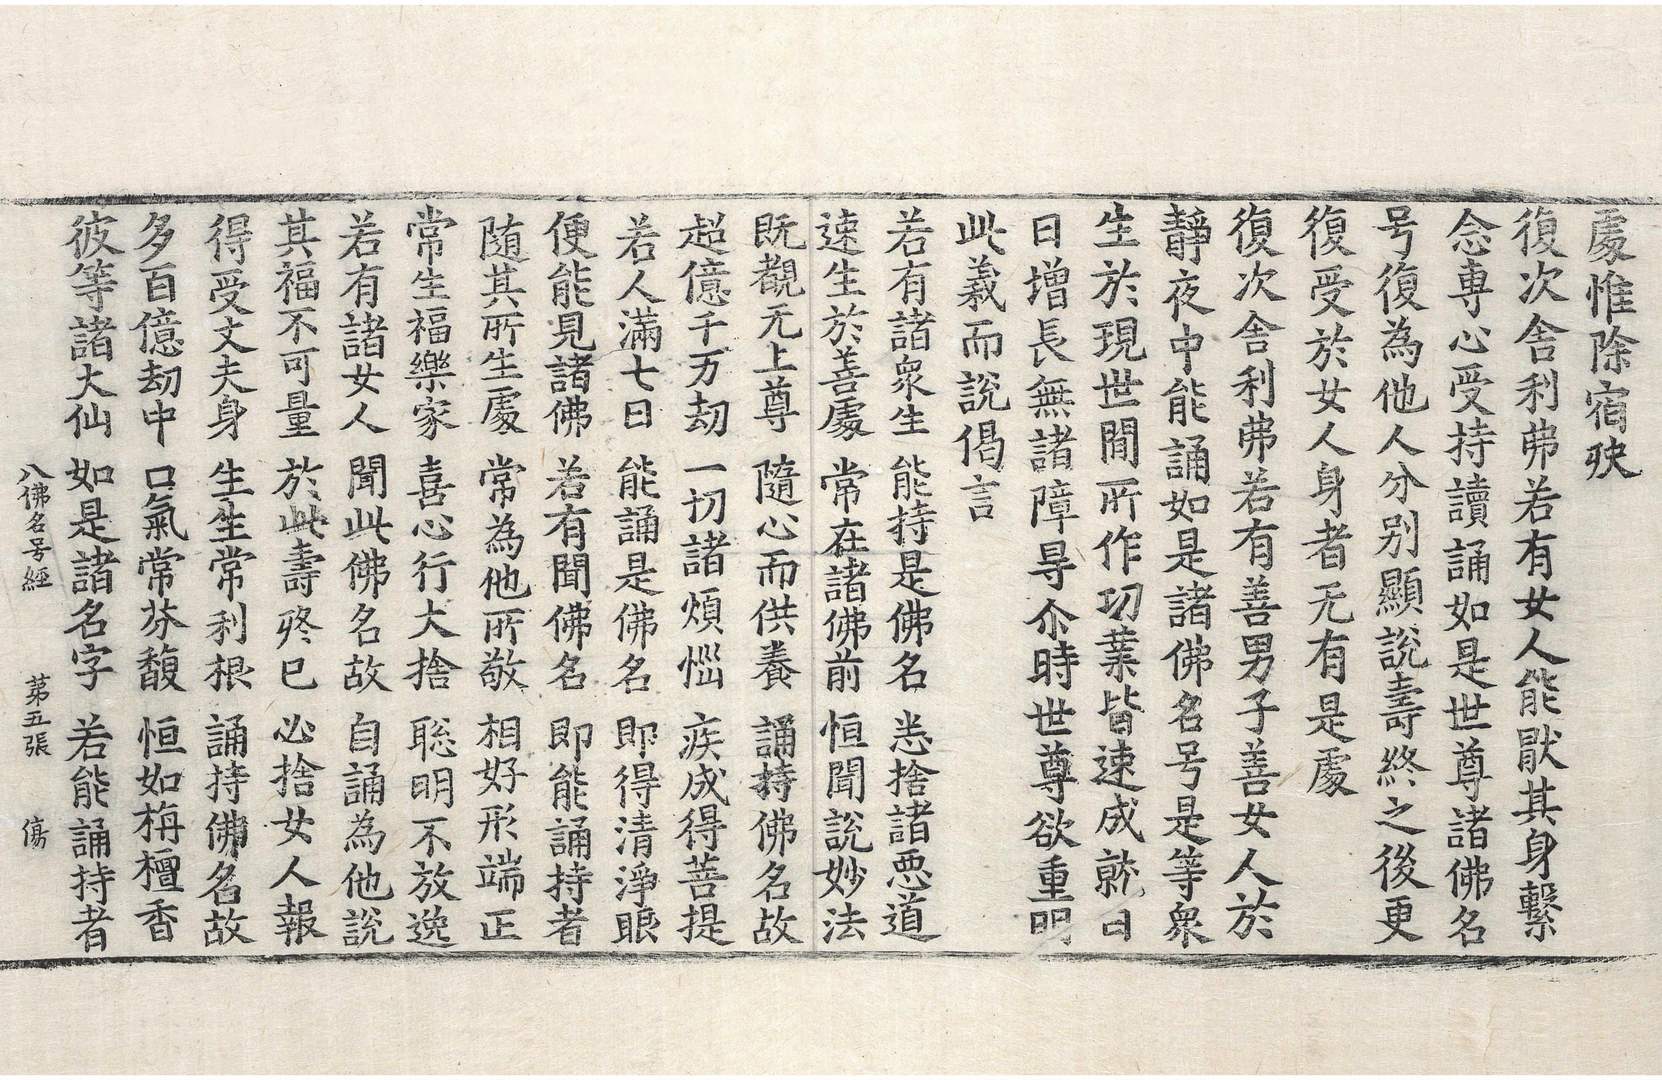 處惟除宿殃
復次舍利弗若有女人能猒其身繫
念專心受持讀誦如是世尊諸佛名
号復為他人分别顯說壽終之後更
復受於女人身者无有是處
復次舍利弗若有善男子善女人於
靜夜中能誦如是諸佛名号是等衆
生於現世閒所作功業皆速成就日
日增長無諸障㝵尒時世尊欲重明
此義而說偈言
若有諸衆生　能持是佛名　悉捨諸惡道
速生於善處　常在諸佛前　恒聞說妙法
旣覩无上尊　隨心而供養　誦持佛名故
超億千万劫　一切諸煩惱　疾成得菩提
若人滿七日　能誦是佛名　即得清淨眼
便能見諸佛　若有聞佛名　即能誦持者
随其所生處　常為他所敬　相好形端正
常生福樂家　喜心行大捨　聡明不放逸
若有諸女人　聞此佛名故　自誦為他說
其福不可量　於此壽終已　必捨女人報
得受丈夫身　生生常利根　誦持佛名故
多百億劫中　口氣常芬馥　恒如栴檀香
彼等諸大仙　如是諸名字　若能誦持者
八佛名号經　苐五張　傷